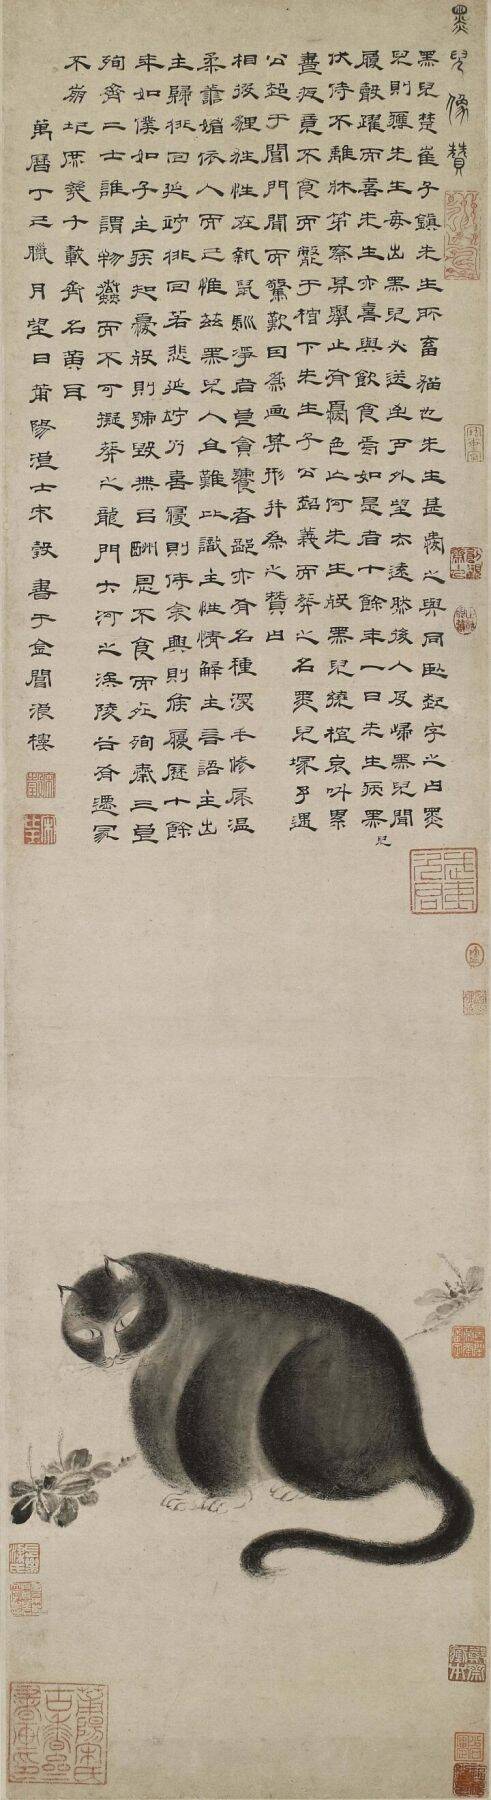 墨兒像贊
黑兒楚崔子鎮先生所畜貓也先生甚愛之與同臥起字之曰黑
兒則應先生每出黑兒必送至戶外望去遠然後入及歸黑兒聞
履聲躍而喜先生亦喜與飲食焉如是者十餘年一日先生病黑兒
伏侍不離牀笫察其舉止有憂色亡何先生歿黑兒繞棺哀叫累
晝夜竟不食而斃于棺下先生子公超義而葬之名黑兒塚予遇
公超于閶門聞而驚歎因為画其形并為之贊曰
相彼貍牲性在執鼠馴淨者是貪饕者鄙亦有名種深毛修尾溫
柔善媚依人而已惟茲黑兒人且難比識主性情解主言語主出
主歸徘徊延竚徘徊若悲延竚乃喜寢則侍衾興則俟履歷十餘
年如僕如子主疾知憂歿則號毀無以酬恩不食而死殉秦三良
殉齊二士誰謂物蠢而不可擬葬之龍門大河之涘陵谷有遷冢
不崩圮庶幾千載齊名黃耳
萬曆丁巳臘月望日莆陽漁士宋瑴書于金閶浪樓